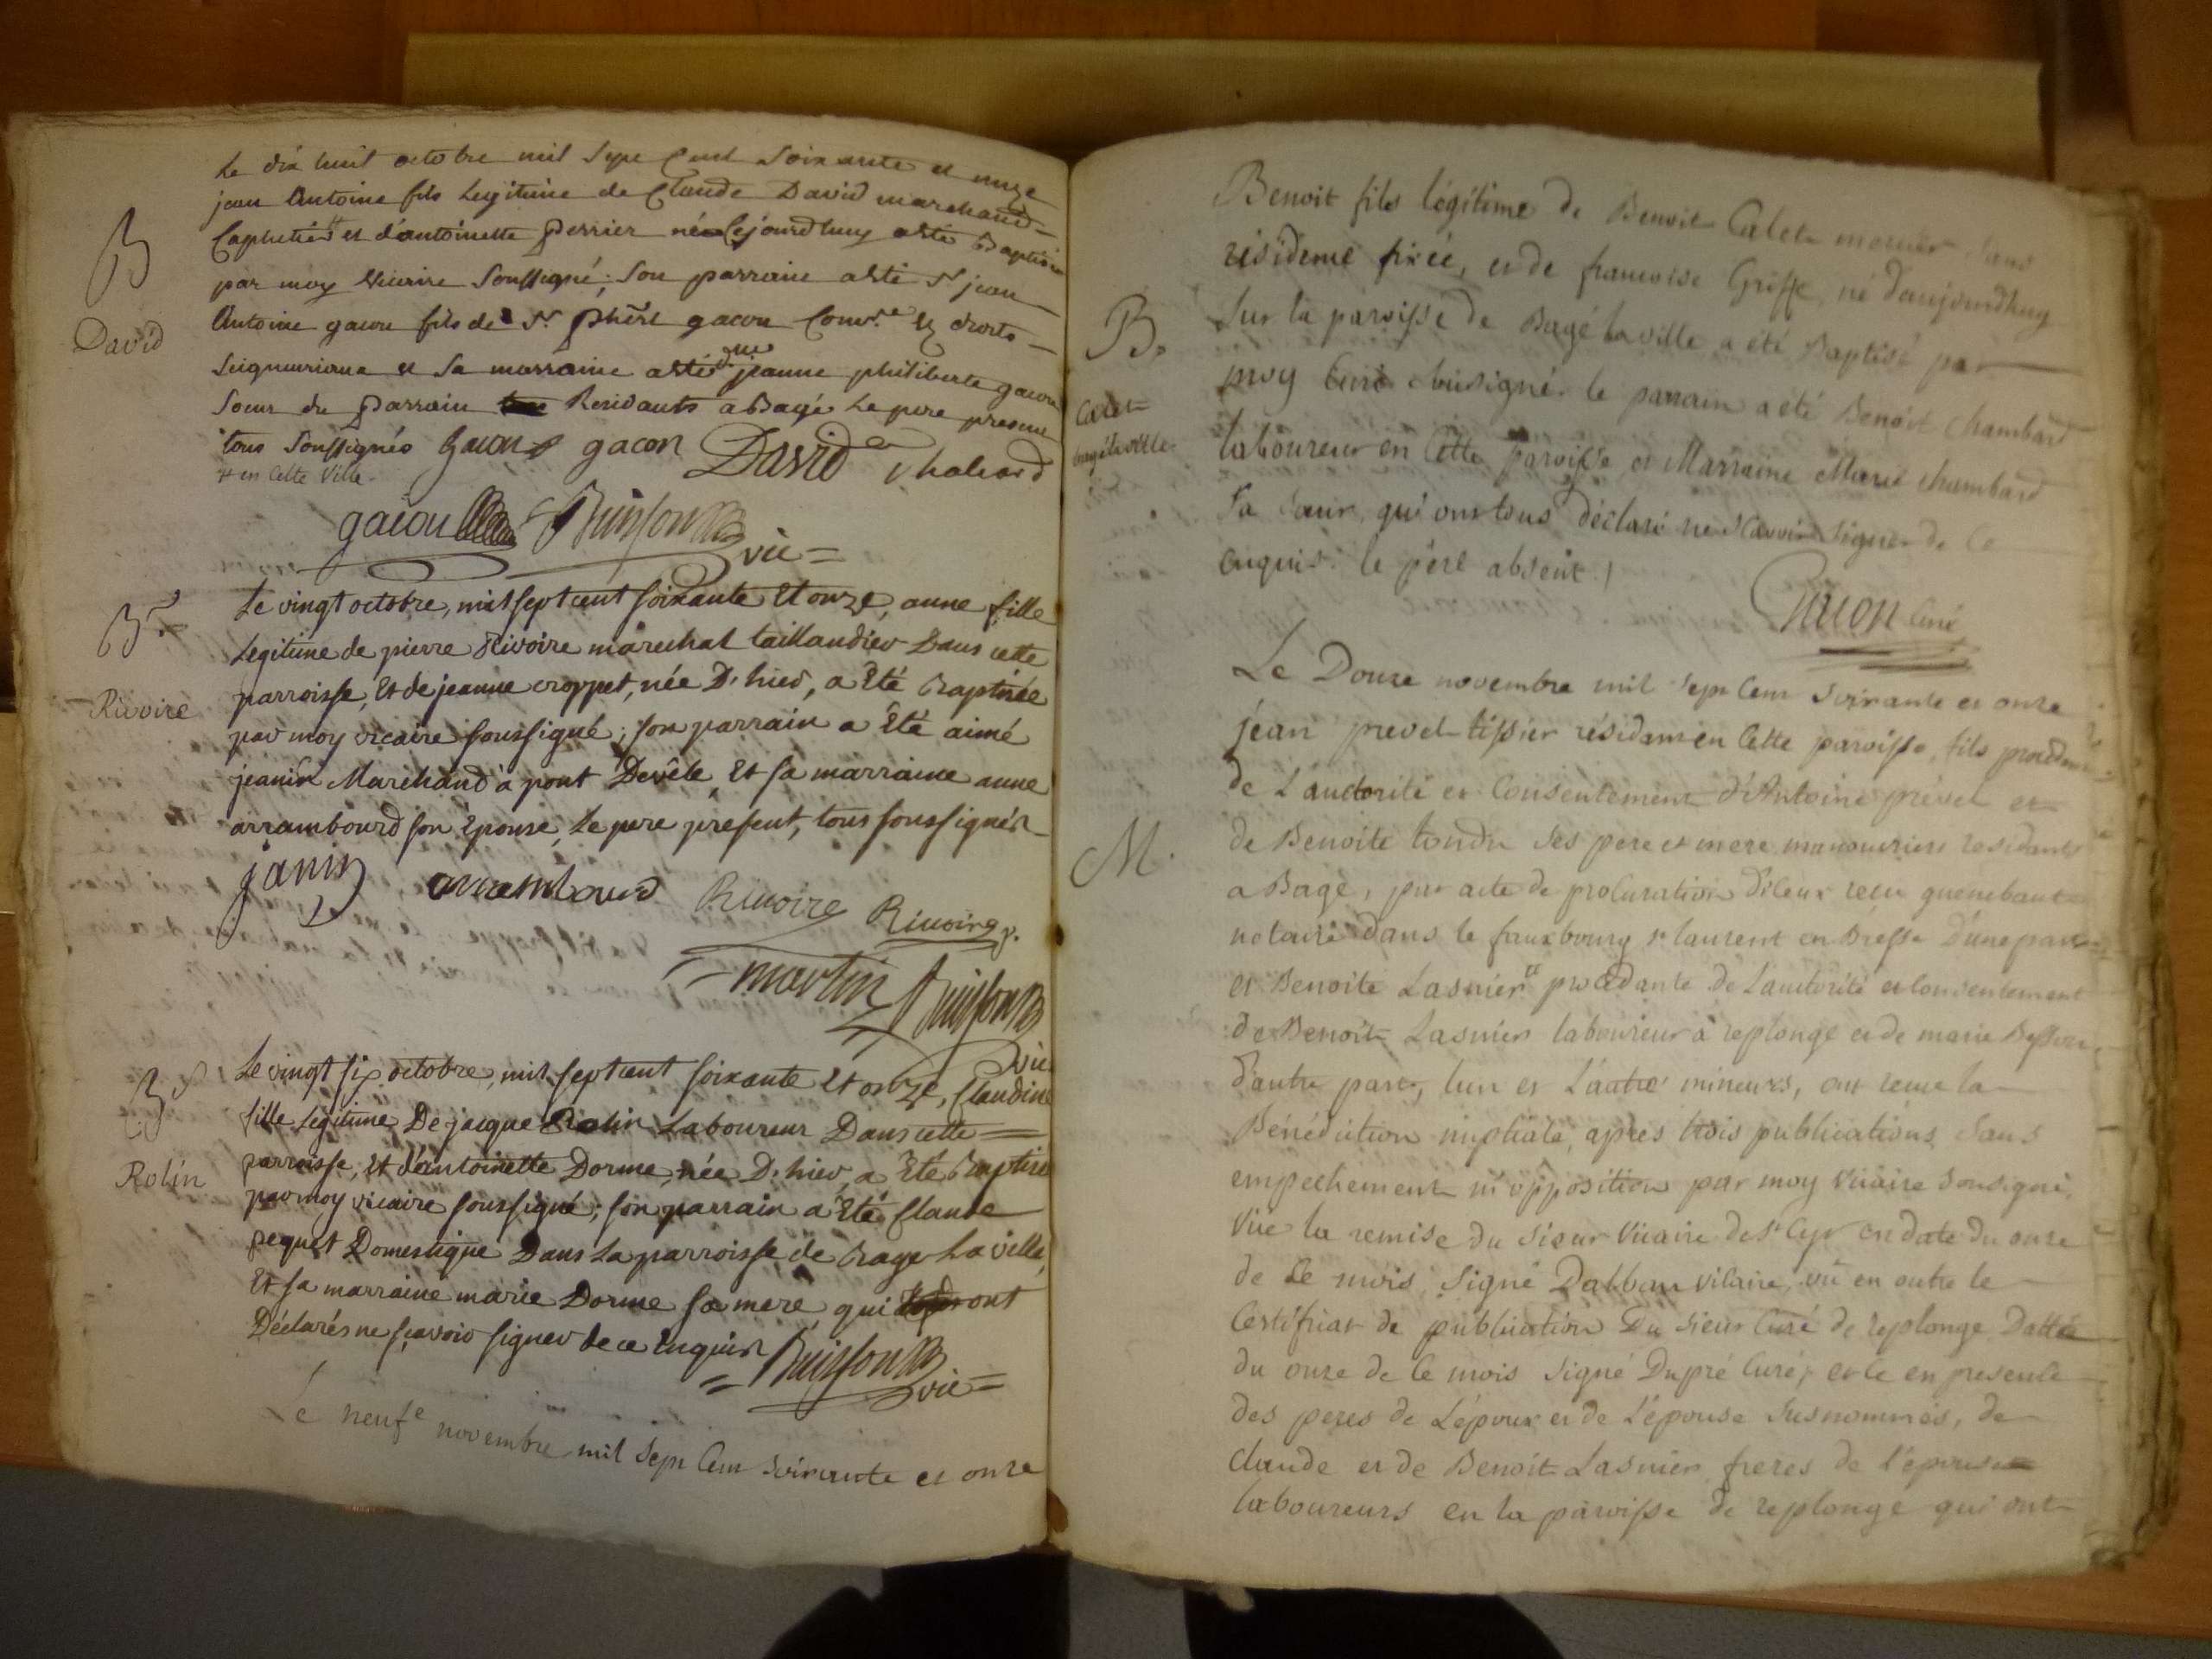 Le dix huit octobre mil sept Cent Soixante et unze
jean Antoine fils Legitime de Claude David marchand
Caphetier # et d'antoinette Perrier né Cejourdhuy a esté Baptisé
par moy Vicaire Soussigné; Son parrain a esté Sr jean
B
David
Antoine gacon fils de Sr Phert gacon Comre des droits
Seigneuriaux et Sa marraine a esté dlle jeanne philiberte gacon
Soeur du Parrain Residants a Bagé Le pere present
tous Soussignés gacon gacon David Chaland
# en Cette Ville.
gacon Buisson vic=
Le vingt octobre, mil sept cent soixante Et onze, anne fille
Legitime de pierre Rivoire marechal taillandier Dans cette
parroisse, Et de jeanne croppet, née D'hier, a Eté Baptisée
par moy vicaire soussigné; son parrain a Eté aimé
jeanin Marchand a pont Devêle, Et sa marraine anne
arrambourd son Epouse, Le pere present, tous soussignés
Bt
Rivoire
janin arrambourd Rivoire Rivoire p.
martin Buisson
vic
Le vingt six octobre, mil sept cent soixante Et onze, Claudine
fille Legitime De jacque Rolin Laboureur Dans cette
parroisse, Et d'antoinette Dorme, née D'hier, a Eté Baptisée
par moy vicaire soussigné; son parrain a Eté Claude
pequet Domestique Dans La parroisse de Bage La ville,
Et sa marraine marie Dorme sa mere, qui ont
Déclarés ne sçavoir signer de ce Enquis
Rolin
Buisson vic=
Le neufe novembre mil Sept Cent Soixante et onze
Benoit fils légitime de Benoit Calet mercier Sans
résidence fixée, et de francoise Griffe, né d'aujourdhuy
Sur la paroisse de Bagé la ville a été Baptisé par
moy Curé Soussigné le parrain a été Benoit Chambard
laboureur en Cette paroisse et Marraine Marie Chambard
Sa Sœur, qui ont tous déclaré ne Scavoir Signer de Ce
enquis. le père absent.
B.
Calet
bagé la ville.
Gacon Curé
Le Douze novembre mil Sept Cent Soixante et onze
jean prevel tissier résidant en Cette paroisse, fils procedant
de L'auctorité et Consentement d'Antoine prevel et
de Benoite tondu Ses pere et mere manouvriers residants
a Bagé, par acte de procuration d'iceux recu
notaire dans le fauxbourg St laurent en Bresse D'une part
et Benoite Lasnier procédante De L'autorité et Consentement
de Benoit Lasnier laboureur à replonge et de marie
d'autre part, l'un et L'autre mineurs, ont recu la
Bénédiction nuptiale, aprés trois publications Sans
empechement ni opposition par moy Vicaire Sousigné,
Vûe la remise du Sieur Vicaire de St Cyr en date du onze
de Ce mois, Signé Dabban vicaire, vû en outre le
Certificat de publication Du Sieur Curé de replonge Datté
du onze de Ce mois Signé Dupré Curé, et Ce en presence
des peres de L'époux et de L'épouse Susnommés, de
Claude et de Benoit Lasnier freres de l'épouse
laboureurs en la paroisse de replonge qui ont
M.